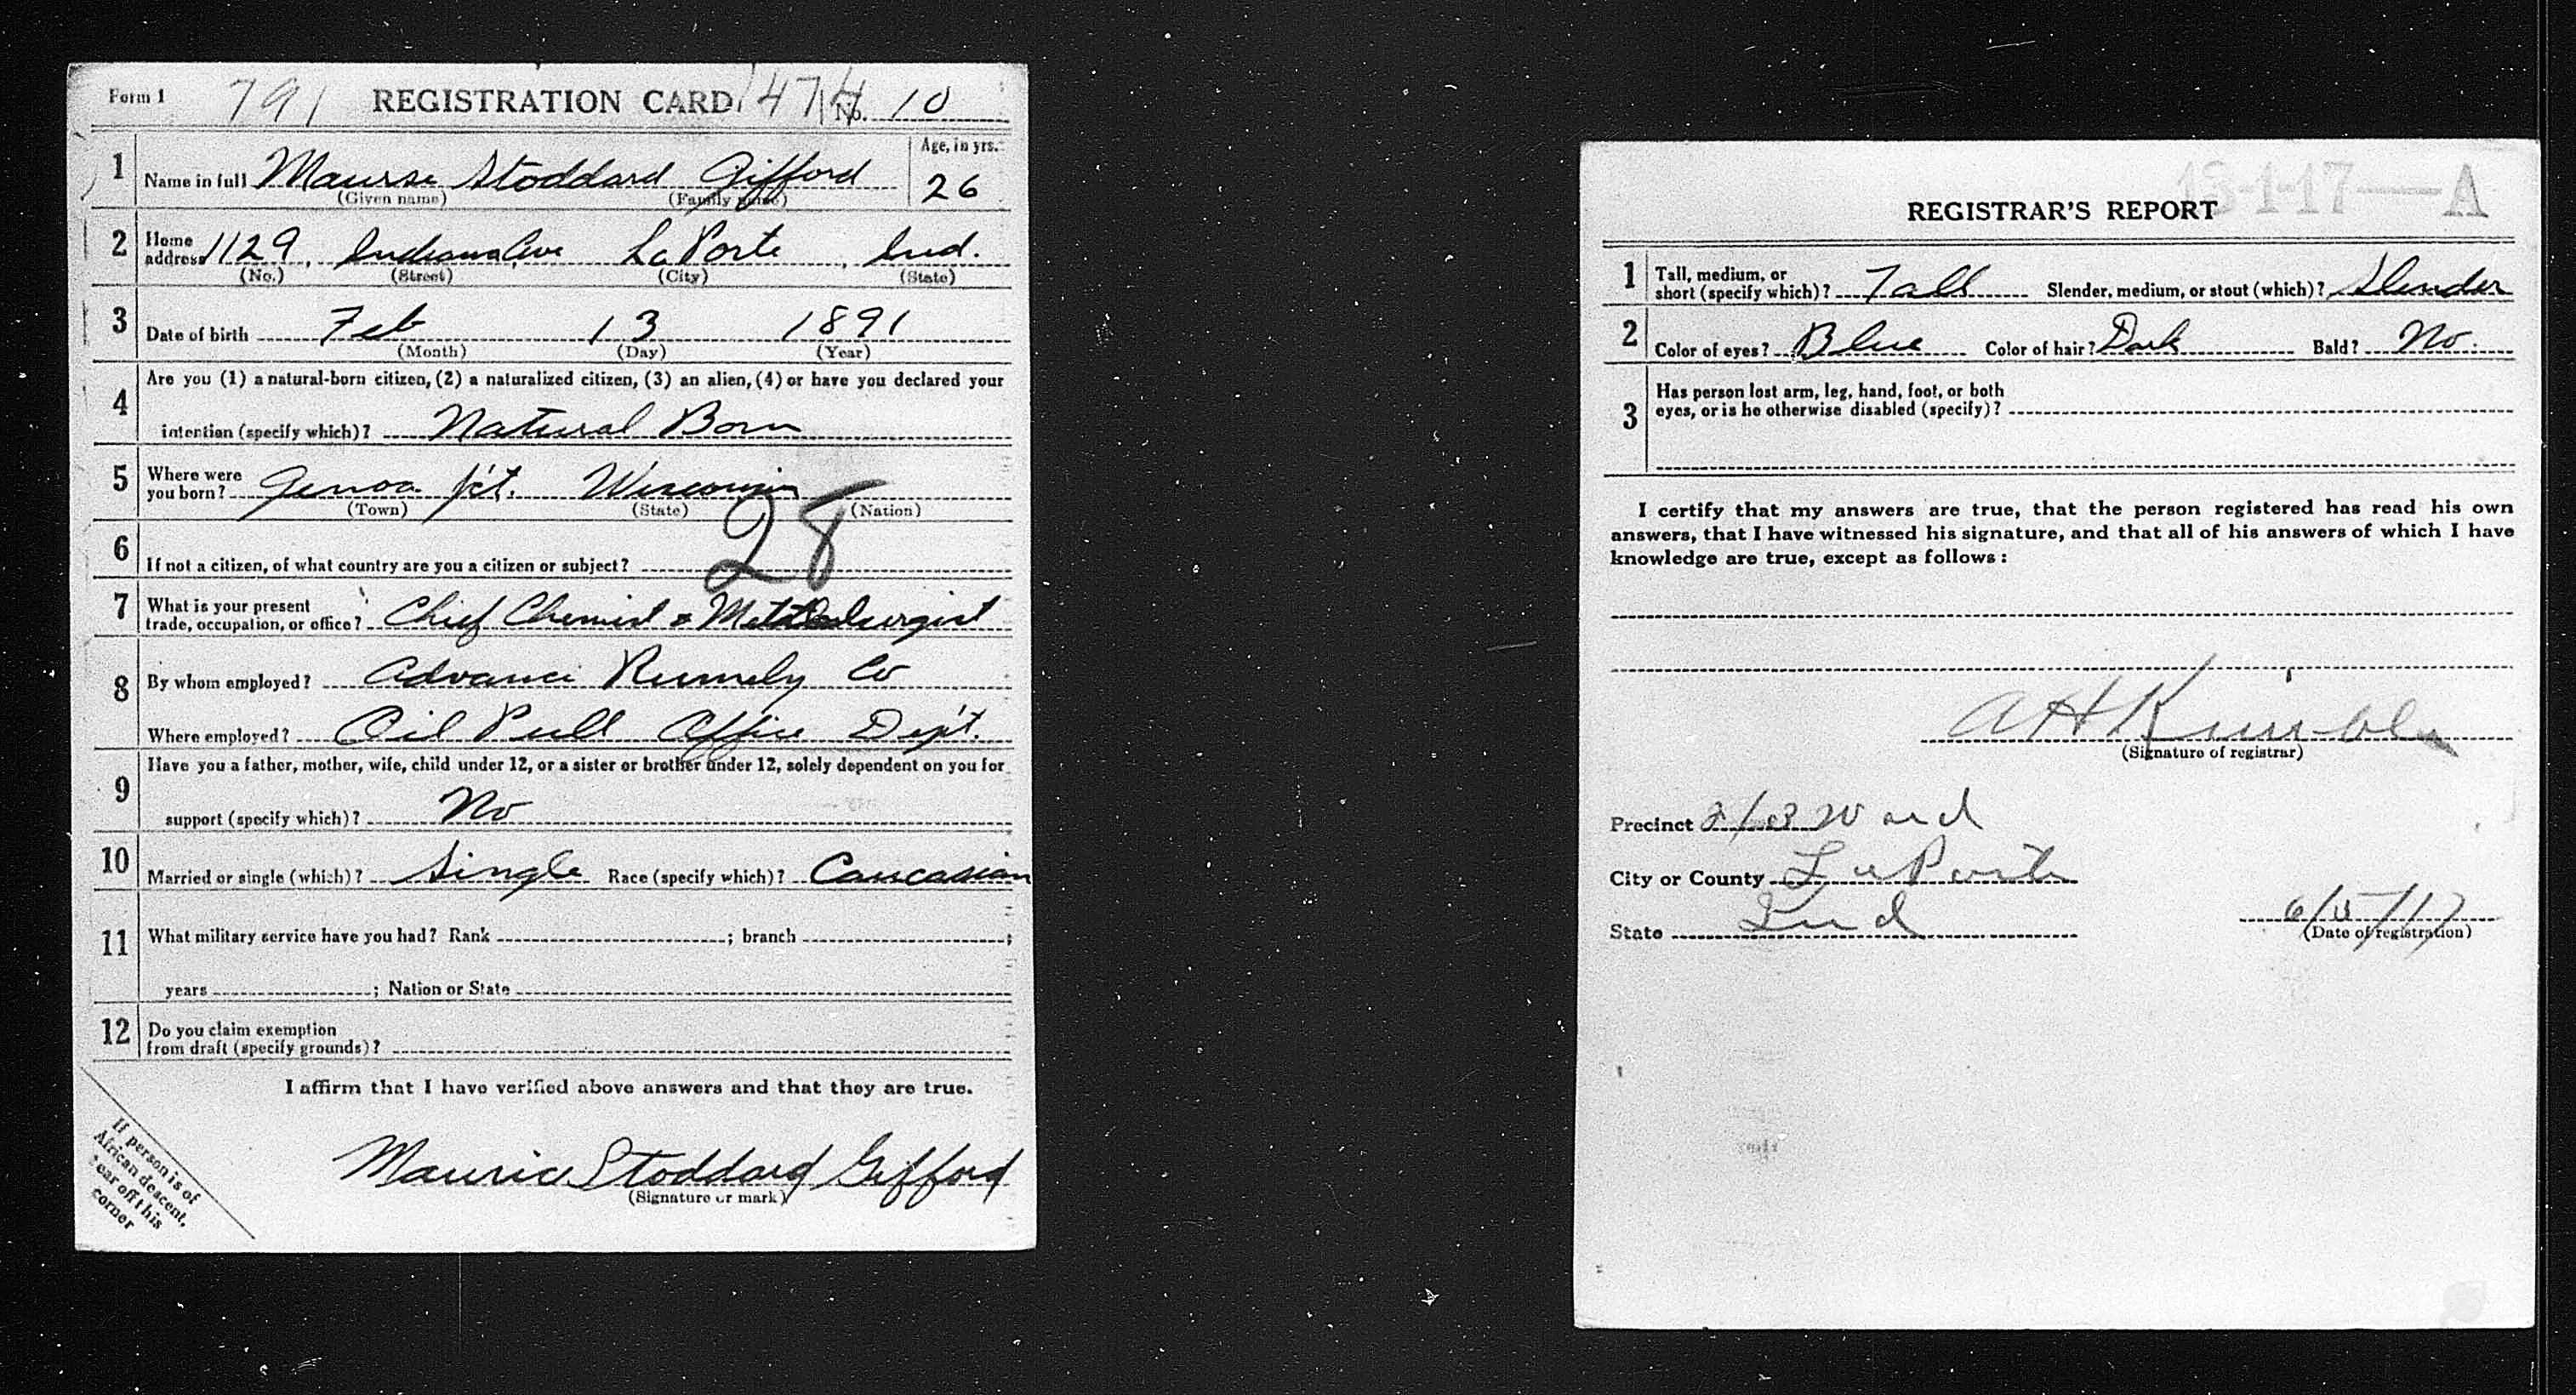 Form 1 791 REGISTRATION CARD 1474 No. 10
1 Name in full Maurse Stoddard Gifford Age, in yrs. 26
(Given name) (Family name)
2 Home address 1129, Indiana Ave La Porte, Ind.
(No.) (Street) (City) (State)
3 Date of birth Feb 13 1891
(Month) (Day) (Year)
4 Are you (1) a natural-born citizen, (2) a naturalized citizen, (3) an alien, (4) or have you declared your
intention (specify which)? Natural Born
5 Where were you born? Genoa Jc't. Wisconsin
(Town) (State) (Nation)
28
6 If not a citizen, of what country are you a citizen or subject?
7 What is your present trade, occupation, or office? Chief Chemist & Metallurgist
8 By whom employed? Advance Rumely Co
Where employed? Oil Pull Office Dep't.
9 Have you a father, mother, wife, child under 12, or a sister or brother under 12, solely dependent on you for
support (specify which)? No
10 Married or single (which)? Single Race (specify which)? Caucasian
11 What military service have you had? Rank ; branch ;
years ; Nation or State
12 Do you claim exemption
from draft (specify grounds)?
I affirm that I have verified above answers and that they are true.
Maurice Stoddard Gifford
(Signature or mark)
If person is of
African descent,
tear off this
corner
13-1-17 A
REGISTRAR'S REPORT
1 Tall, medium, or short (specify which)? Tall Slender, medium, or stout (which)? Slender
2 Color of eyes? Blue Color of hair? Dark Bald? No.
3 Has person lost arm, leg, hand, foot, or both
eyes, or is he otherwise disabled (specify)?
I certify that my answers are true, that the person registered has read his own
answers, that I have witnessed his signature, and that all of his answers of which I have
knowledge are true, except as follows:
A H Kimble
(Signature of registrar)
Precinct 2/3 Ward
City or County La Porte
State Ind 6/5/17
(Date of registration)